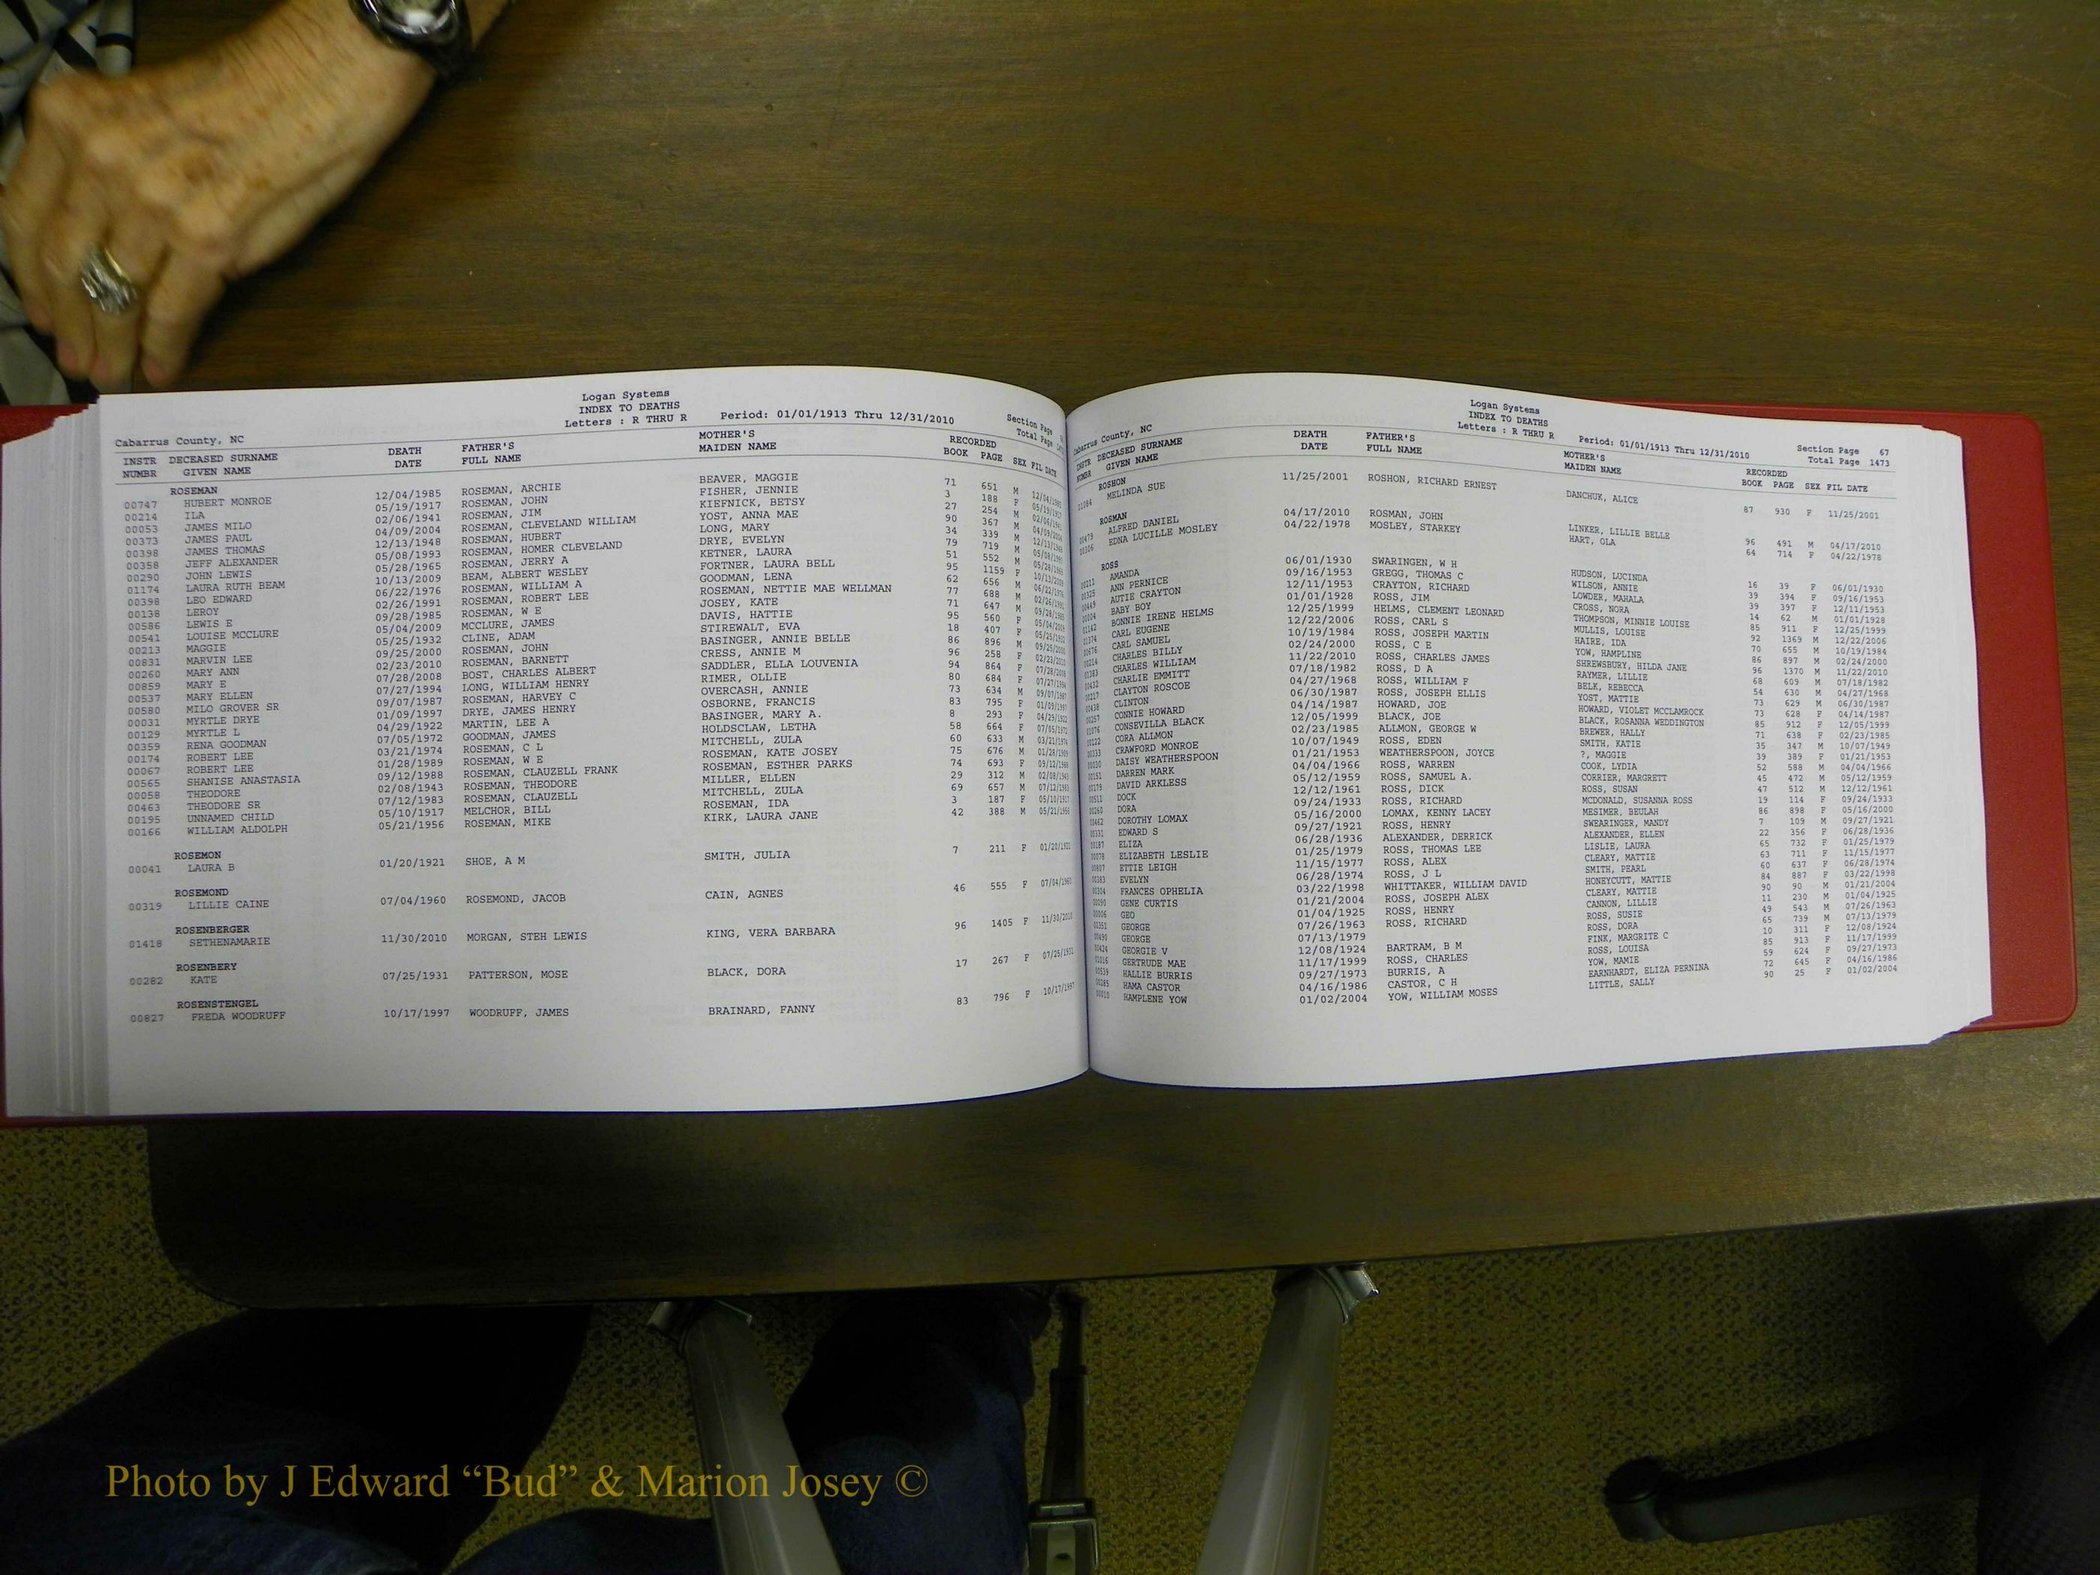 Logan Systems
INDEX TO DEATHS
Cabarrus County, NC Letters : R THRU R Period: 01/01/1913 Thru 12/31/2010 Section Page
Total Page
INSTR DECEASED SURNAME DEATH FATHER'S MOTHER'S RECORDED
NUMBR GIVEN NAME DATE FULL NAME MAIDEN NAME BOOK PAGE SEX FIL DATE
ROSEMAN
00747 HUBERT MONROE 12/04/1985 ROSEMAN, ARCHIE BEAVER, MAGGIE 71 651 M 12/04/1985
00214 ILA 05/19/1917 ROSEMAN, JOHN FISHER, JENNIE 3 188 F 05/19/1917
00053 JAMES MILO 02/06/1941 ROSEMAN, JIM KIEFNICK, BETSY 27 254 M 02/06/1941
00373 JAMES PAUL 04/09/2004 ROSEMAN, CLEVELAND WILLIAM YOST, ANNA MAE 90 367 M 04/09/2004
00398 JAMES THOMAS 12/13/1948 ROSEMAN, HUBERT LONG, MARY 34 339 M 12/13/1948
00358 JEFF ALEXANDER 05/08/1993 ROSEMAN, HOMER CLEVELAND DRYE, EVELYN 79 719 M 05/08/1993
00290 JOHN LEWIS 05/28/1965 ROSEMAN, JERRY A KETNER, LAURA 51 552 M 05/28/1965
01174 LAURA RUTH BEAM 10/13/2009 BEAM, ALBERT WESLEY FORTNER, LAURA BELL 95 1159 F 10/13/2009
00398 LEO EDWARD 06/22/1976 ROSEMAN, WILLIAM A GOODMAN, LENA 62 656 M 06/22/1976
00138 LEROY 02/26/1991 ROSEMAN, ROBERT LEE ROSEMAN, NETTIE MAE WELLMAN 77 688 M 02/26/1991
00586 LEWIS E 09/28/1985 ROSEMAN, W E JOSEY, KATE 71 647 M 09/28/1985
00541 LOUISE MCCLURE 05/04/2009 MCCLURE, JAMES DAVIS, HATTIE 95 560 F 05/04/2009
00213 MAGGIE 05/25/1932 CLINE, ADAM STIREWALT, EVA 18 407 F 05/25/1932
00831 MARVIN LEE 09/25/2000 ROSEMAN, JOHN BASINGER, ANNIE BELLE 86 896 M 09/25/2000
00260 MARY ANN 02/23/2010 ROSEMAN, BARNETT CRESS, ANNIE M 96 258 F 02/23/2010
00859 MARY E 07/28/2008 BOST, CHARLES ALBERT SADDLER, ELLA LOUVENIA 94 864 F 07/28/2008
00537 MARY ELLEN 07/27/1994 LONG, WILLIAM HENRY RIMER, OLLIE 80 684 F 07/27/1994
00580 MILO GROVER SR 09/07/1987 ROSEMAN, HARVEY C OVERCASH, ANNIE 73 634 M 09/07/1987
00031 MYRTLE DRYE 01/09/1997 DRYE, JAMES HENRY OSBORNE, FRANCIS 83 795 F 01/09/1997
00129 MYRTLE L 04/29/1922 MARTIN, LEE A BASINGER, MARY A. 8 293 F 04/29/1922
00359 RENA GOODMAN 07/05/1972 GOODMAN, JAMES HOLDSCLAW, LETHA 58 664 F 07/05/1972
00174 ROBERT LEE 03/21/1974 ROSEMAN, C L MITCHELL, ZULA 60 633 M 03/21/1974
00067 ROBERT LEE 01/28/1989 ROSEMAN, W E ROSEMAN, KATE JOSEY 75 676 M 01/28/1989
00565 SHANISE ANASTASIA 09/12/1988 ROSEMAN, CLAUZELL FRANK ROSEMAN, ESTHER PARKS 74 693 F 09/12/1988
00058 THEODORE 02/08/1943 ROSEMAN, THEODORE MILLER, ELLEN 29 312 M 02/08/1943
00463 THEODORE SR 07/12/1983 ROSEMAN, CLAUZELL MITCHELL, ZULA 69 657 M 07/12/1983
00195 UNNAMED CHILD 05/10/1917 MELCHOR, BILL ROSEMAN, IDA 3 187 F 05/10/1917
00166 WILLIAM ALDOLPH 05/21/1956 ROSEMAN, MIKE KIRK, LAURA JANE 42 388 M 05/21/1956
ROSEMON
00041 LAURA B 01/20/1921 SHOE, A M SMITH, JULIA 7 211 F 01/20/1921
ROSEMOND
00319 LILLIE CAINE 07/04/1960 ROSEMOND, JACOB CAIN, AGNES 46 555 F 07/04/1960
ROSENBERGER
01418 SETHENAMARIE 11/30/2010 MORGAN, STEH LEWIS KING, VERA BARBARA 96 1405 F 11/30/2010
ROSENBERY
00282 KATE 07/25/1931 PATTERSON, MOSE BLACK, DORA 17 267 F 07/25/1931
ROSENSTENGEL
00827 FREDA WOODRUFF 10/17/1997 WOODRUFF, JAMES BRAINARD, FANNY 83 796 F 10/17/1997
Logan Systems
INDEX TO DEATHS
Cabarrus County, NC Letters : R THRU R Period: 01/01/1913 Thru 12/31/2010 Section Page 67
Total Page 1473
INSTR DECEASED SURNAME DEATH FATHER'S MOTHER'S RECORDED
NUMBR GIVEN NAME DATE FULL NAME MAIDEN NAME BOOK PAGE SEX FIL DATE
ROSHON
01084 MELINDA SUE 11/25/2001 ROSHON, RICHARD ERNEST DANCHUK, ALICE 87 930 F 11/25/2001
ROSMAN
00479 ALFRED DANIEL 04/17/2010 ROSMAN, JOHN LINKER, LILLIE BELLE 96 491 M 04/17/2010
00306 EDNA LUCILLE MOSLEY 04/22/1978 MOSLEY, STARKEY HART, OLA 64 714 F 04/22/1978
ROSS
00211 AMANDA 06/01/1930 SWARINGEN, W H HUDSON, LUCINDA 16 39 F 06/01/1930
00325 ANN PERNICE 09/16/1953 GREGG, THOMAS C WILSON, ANNIE 39 394 F 09/16/1953
00449 AUTIE CRAYTON 12/11/1953 CRAYTON, RICHARD LOWDER, MAHALA 39 397 F 12/11/1953
00004 BABY BOY 01/01/1928 ROSS, JIM CROSS, NORA 14 62 M 01/01/1928
01142 BONNIE IRENE HELMS 12/25/1999 HELMS, CLEMENT LEONARD THOMPSON, MINNIE LOUISE 85 911 F 12/25/1999
01374 CARL EUGENE 12/22/2006 ROSS, CARL S MULLIS, LOUISE 92 1369 M 12/22/2006
00676 CARL SAMUEL 10/19/1984 ROSS, JOSEPH MARTIN HAIRE, IDA 70 655 M 10/19/1984
00214 CHARLES BILLY 02/24/2000 ROSS, C E YOW, HAMPLINE 86 897 M 02/24/2000
01383 CHARLES WILLIAM 11/22/2010 ROSS, CHARLES JAMES SHREWSBURY, HILDA JANE 96 1370 M 11/22/2010
00432 CHARLIE EMMITT 07/18/1982 ROSS, D A RAYMER, LILLIE 68 609 M 07/18/1982
00217 CLAYTON ROSCOE 04/27/1968 ROSS, WILLIAM F BELK, REBECCA 54 630 M 04/27/1968
00438 CLINTON 06/30/1987 ROSS, JOSEPH ELLIS YOST, MATTIE 73 629 M 06/30/1987
00257 CONNIE HOWARD 04/14/1987 HOWARD, JOE HOWARD, VIOLET MCCLAMROCK 73 628 F 04/14/1987
01076 CONSEVILLA BLACK 12/05/1999 BLACK, JOE BLACK, ROSANNA WEDDINGTON 85 912 F 12/05/1999
00122 CORA ALLMON 02/23/1985 ALLMON, GEORGE W BREWER, HALLY 71 638 F 02/23/1985
00333 CRAWFORD MONROE 10/07/1949 ROSS, EDEN SMITH, KATIE 35 347 M 10/07/1949
00030 DAISY WEATHERSPOON 01/21/1953 WEATHERSPOON, JOYCE ?, MAGGIE 39 389 F 01/21/1953
00151 DARREN MARK 04/04/1966 ROSS, WARREN COOK, LYDIA 52 588 M 04/04/1966
00179 DAVID ARKLESS 05/12/1959 ROSS, SAMUEL A. CORRIER, MARGRETT 45 472 M 05/12/1959
00511 DOCK 12/12/1961 ROSS, DICK ROSS, SUSAN 47 512 M 12/12/1961
00260 DORA 09/24/1933 ROSS, RICHARD MCDONALD, SUSANNA ROSS 19 114 F 09/24/1933
00462 DOROTHY LOMAX 05/16/2000 LOMAX, KENNY LACEY MESIMER, BEULAH 86 898 F 05/16/2000
00331 EDWARD S 09/27/1921 ROSS, HENRY SWEARINGER, MANDY 7 109 M 09/27/1921
00187 ELIZA 06/28/1936 ALEXANDER, DERRICK ALEXANDER, ELLEN 22 356 F 06/28/1936
00078 ELIZABETH LESLIE 01/25/1979 ROSS, THOMAS LEE LISLIE, LAURA 65 732 F 01/25/1979
00807 ETTIE LEIGH 11/15/1977 ROSS, ALEX CLEARY, MATTIE 63 711 F 11/15/1977
00383 EVELYN 06/28/1974 ROSS, J L SMITH, PEARL 60 637 F 06/28/1974
00304 FRANCES OPHELIA 03/22/1998 WHITTAKER, WILLIAM DAVID HONEYCUTT, MATTIE 84 887 F 03/22/1998
00090 GENE CURTIS 01/21/2004 ROSS, JOSEPH ALEX CLEARY, MATTIE 90 90 M 01/21/2004
00006 GEO 01/04/1925 ROSS, HENRY CANNON, LILLIE 11 230 M 01/04/1925
00351 GEORGE 07/26/1963 ROSS, RICHARD ROSS, SUSIE 49 543 M 07/26/1963
00490 GEORGE 07/13/1979 ROSS, DORA 65 739 M 07/13/1979
00424 GEORGIE V 12/08/1924 BARTRAM, B M FINK, MARGRITE C 10 311 F 12/08/1924
01016 GERTRUDE MAE 11/17/1999 ROSS, CHARLES ROSS, LOUISA 85 913 F 11/17/1999
00539 HALLIE BURRIS 09/27/1973 BURRIS, A YOW, MAMIE 59 624 F 09/27/1973
00285 HAMA CASTOR 04/16/1986 CASTOR, C H EARNHARDT, ELIZA PERNINA 72 645 F 04/16/1986
00010 HAMPLENE YOW 01/02/2004 YOW, WILLIAM MOSES LITTLE, SALLY 90 25 F 01/02/2004
Photo by J Edward “Bud” & Marion Josey ©